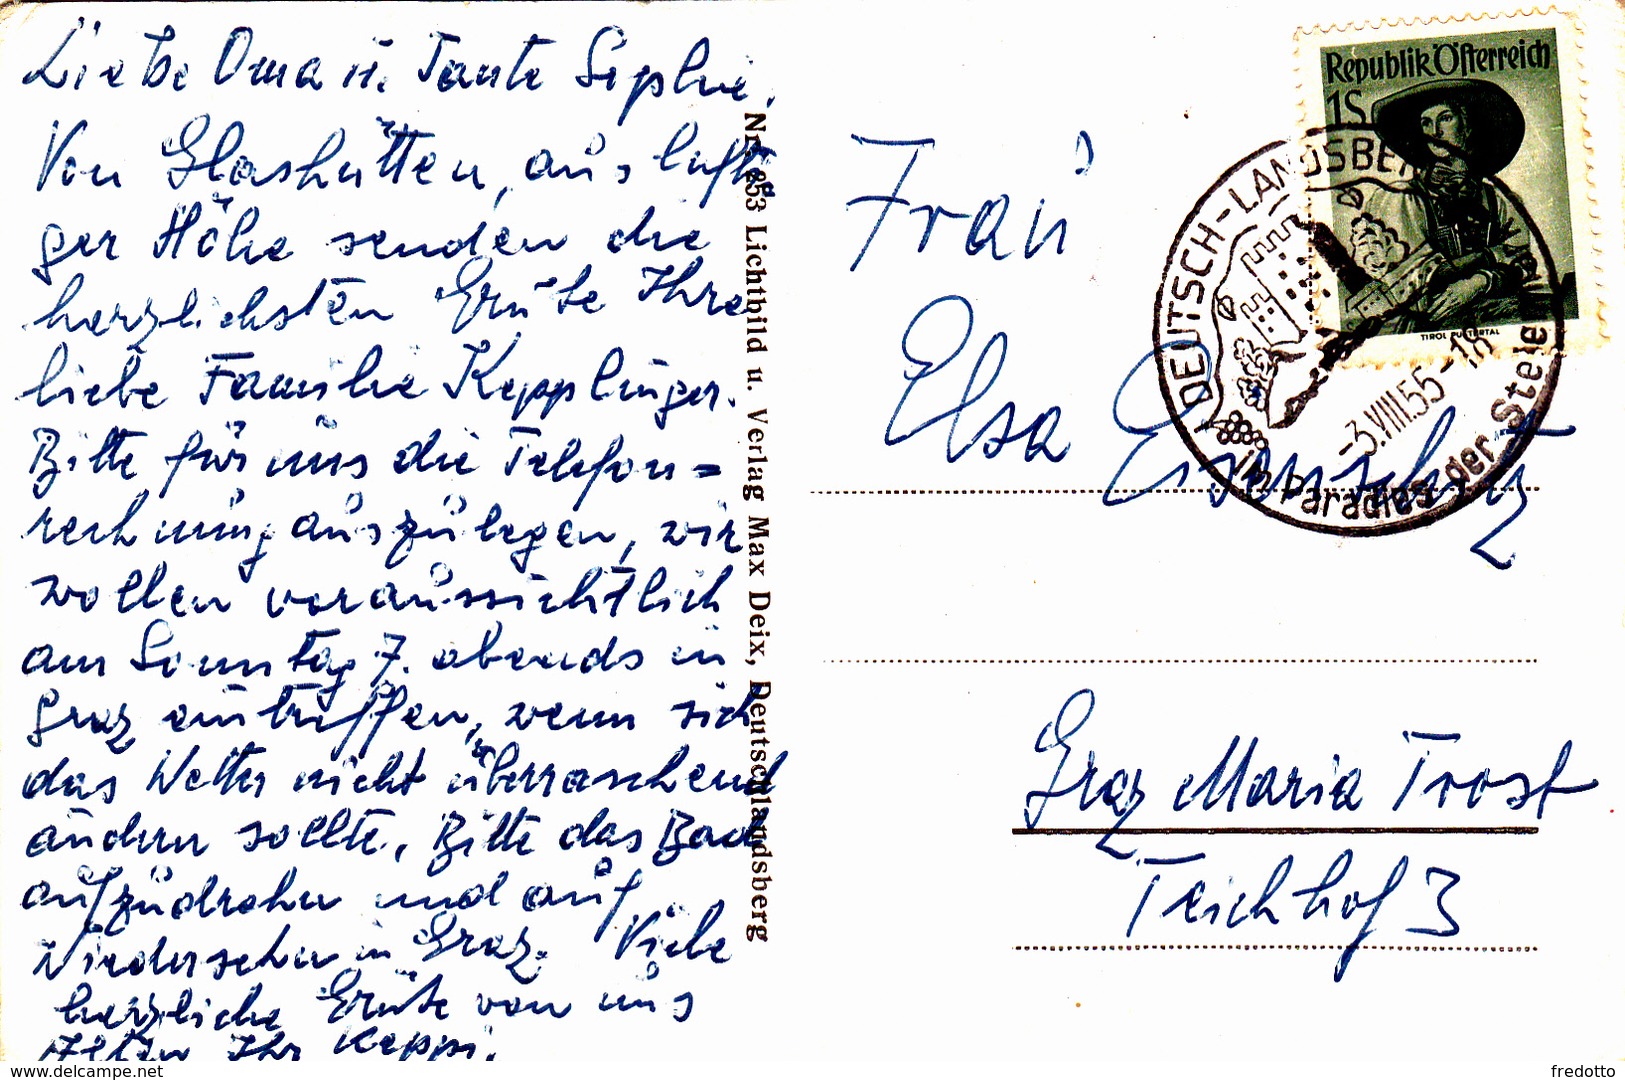 Liebe Oma u. Tante Sophie.
Von Glashütten, aus lufti
ger Höhe senden die
herzlichsten Grüße Ihre
liebe Familie Kepplinger.
Bitte für uns die Telefon=
rechnung auszulegen, wir
wollen voraussichtlich
am Sonntag 7. abends in
Graz eintreffen, wenn sich
das Wetter nicht überraschend
ändern sollte. Bitte das Bad
aufzudrehen und auf
Wiedersehen in Graz. Viele
herzliche Grüße von uns
Ihr Keppi.
Nr. 253 Lichtbild u. Verlag Max Deix, Deutschlandsberg
Republik Österreich
1S
TIROL PUSTERTAL
DEUTSCH-LANDSBERG
-3.VIII.55-18
im Paradies der Steier
Frau
Elsa Eisenschitz
Graz Maria Trost
Teichhof 3
www.delcampe.net
fredotto